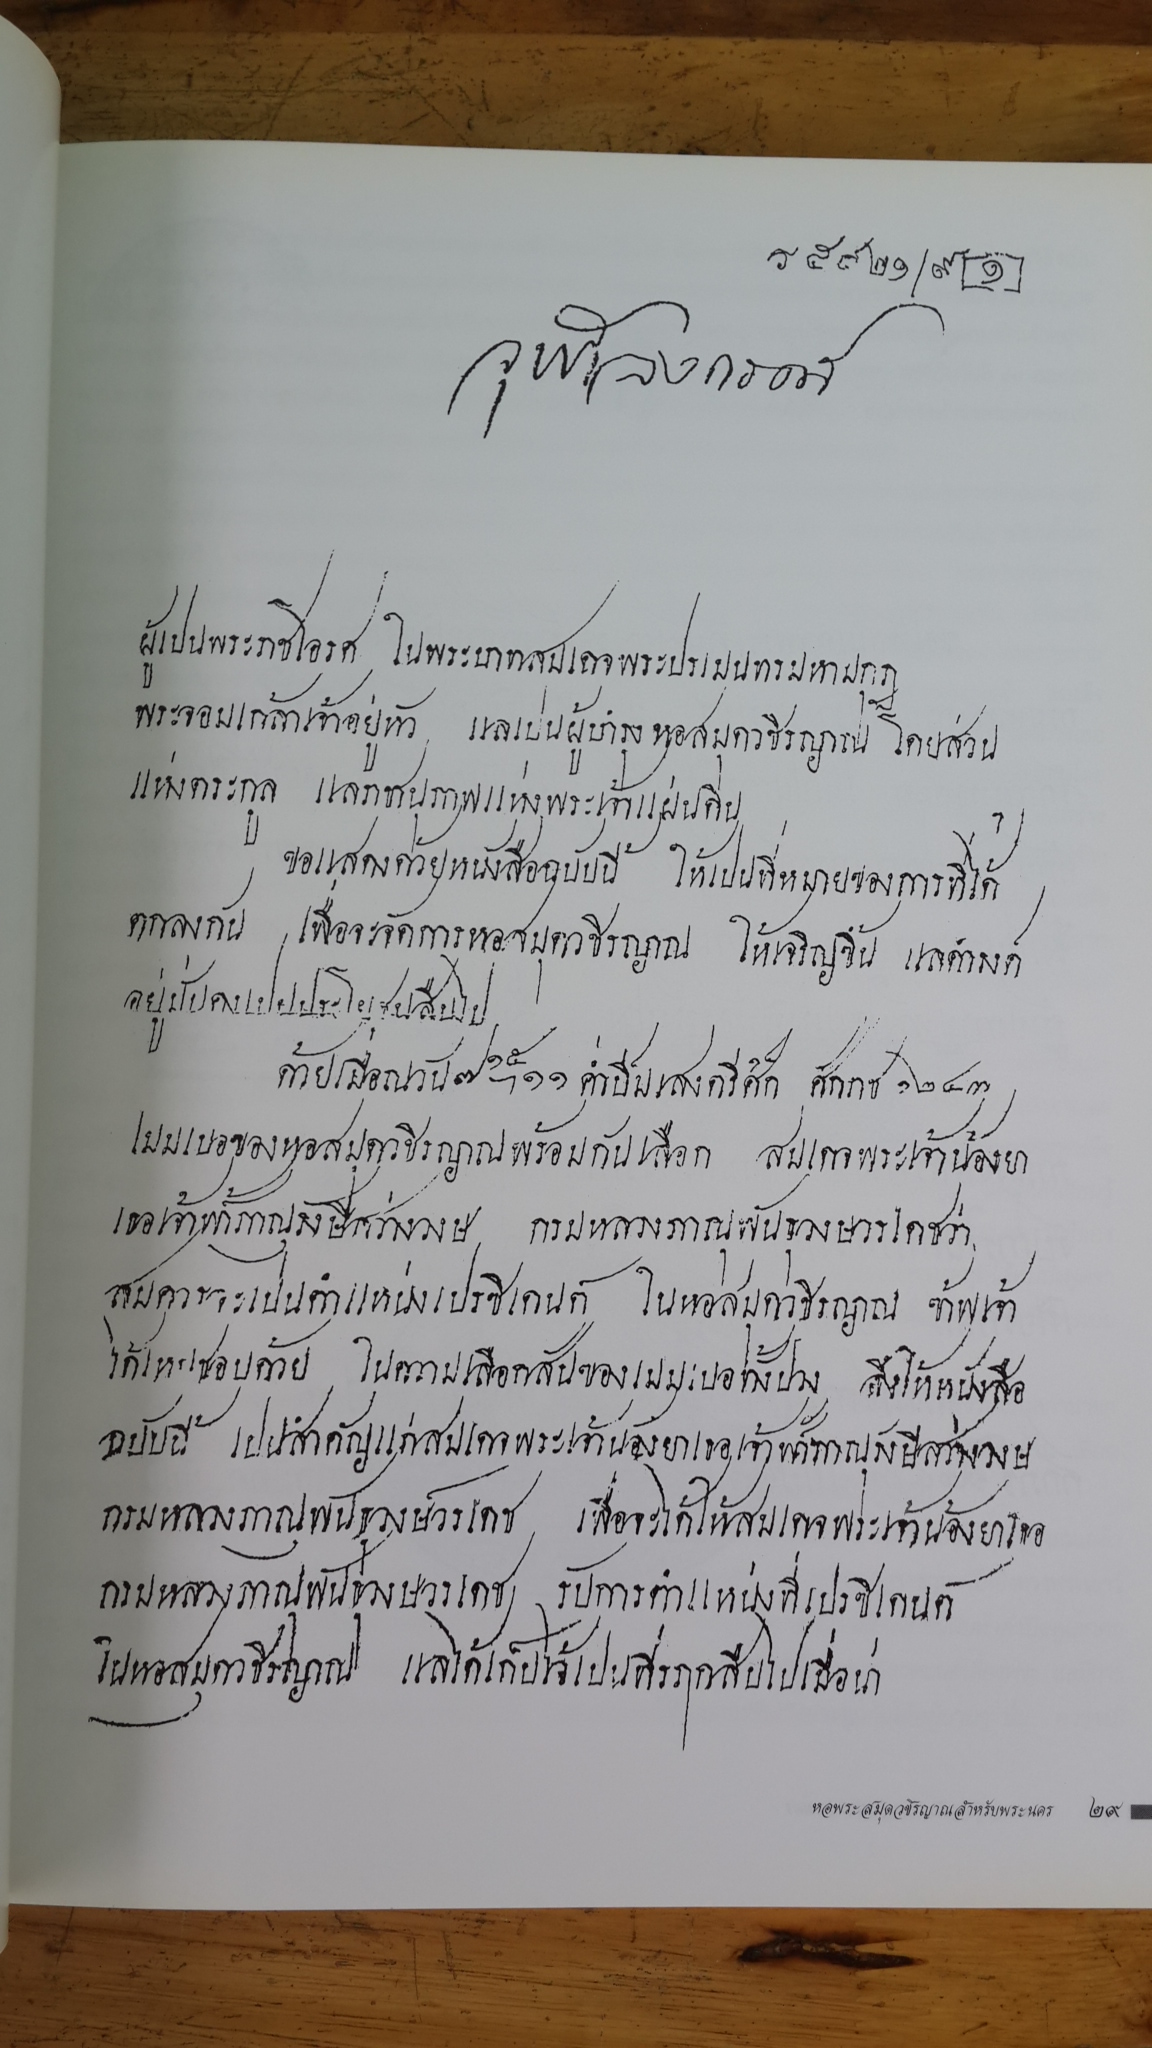 จุฬาลงกรณ์
ผู้เปนพระราชโอรส ในพระบาทสมเดจพระปรเมนทรมหามกุฎ
พระจอมเกล้าเจ้าอยู่หัว แลเปนผู้บำรุงหอสมุดวชิรญาณ โดยส่วน
แห่งตระกูล แลราชานุภาพแห่งพระเจ้าแผ่นดิน
ขอแสดงด้วยหนังสือฉบับนี้ ให้เปนที่หมายของการที่ได้
ตกลงกัน เพื่อจะจัดการหอสมุดวชิรญาณ ให้เจริญขึ้น แลดำรงค์
อยู่มั่นคงเปนประโยชนสืบไป
ด้วยเมื่อณวัน ๗ ๑๑ ค่ำปีมเสงตรีศก ศักราช ๑๒๔๓
เมมเบอของหอสมุดวชิรญาณพร้อมกันเลือก สมเดจพระเจ้าน้องยา
เธอเจ้าฟ้าภาณุรังษีสว่างวงษ กรมหลวงภาณุพันธุวงษวรเดชว่า
สมควรจะเปนตำแหน่งเปรซิเดนต์ ในหอสมุดวชิรญาณ ข้าพเจ้า
ได้เหนชอบด้วย ในความเลือกสันของเมมเบอทั้งปวง จึงให้หนังสือ
ฉบับนี้ เปนสำคัญแก่สมเดจพระเจ้าน้องยาเธอเจ้าฟ้าภาณุรังษีสว่างวงษ
กรมหลวงภาณุพันธุวงษ์วรเดช เพื่อจะได้ให้สมเดจพระเจ้าน้องยาเธอ
กรมหลวงภาณุพันธุวงษวรเดช รับการตำแหน่งที่เปรซิเดนต์
ในหอสมุดวชิรญาณ แลได้เก็บไว้เปนที่รฦกสืบไปเมื่อน่า
หอพระสมุดวชิรญาณสำหรับพระนคร ๒๙